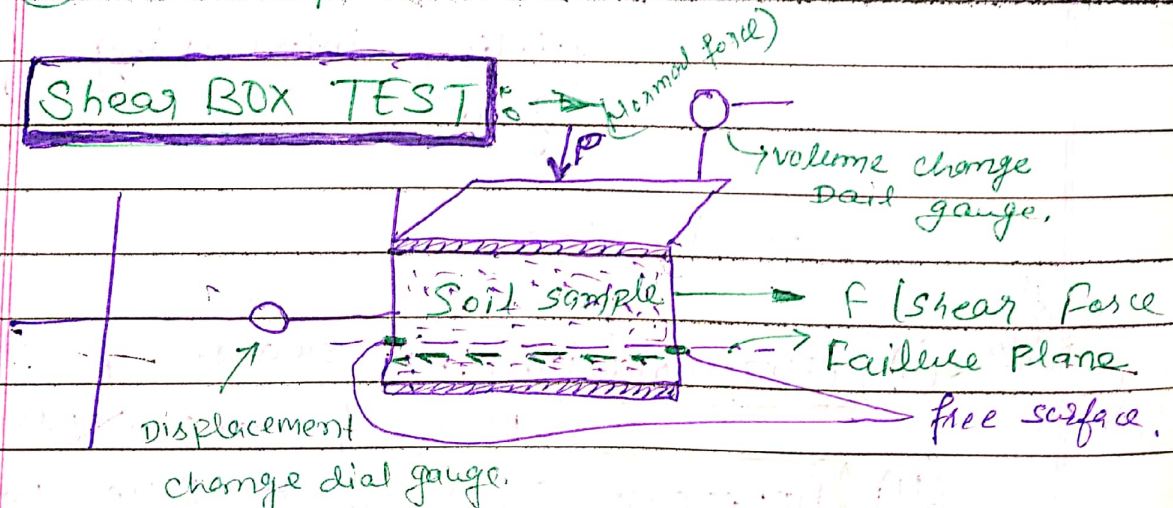 Shear BOX TEST :→ (Normal force)
P
volume change
Dail gauge.
Soil sample
F (Shear Force
Failure Plane
free surface.
Displacement
change dial gauge.